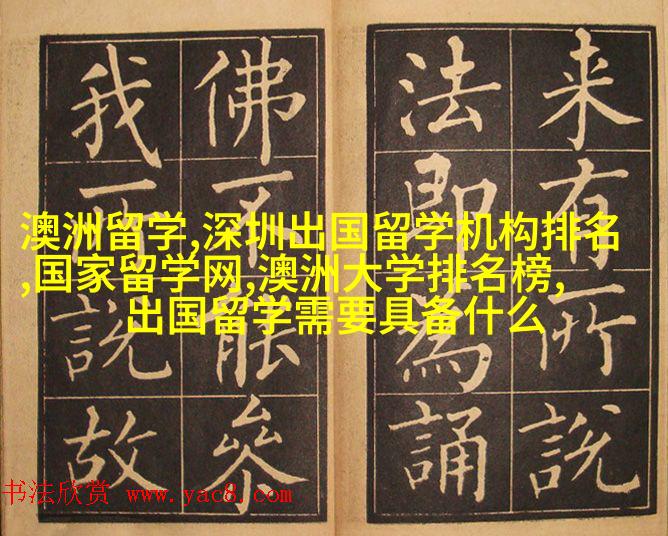 来有所說
法即為誦
佛不能叅
我說故
澳洲留学,深圳出国留学机构排名
,国家留学网,澳洲大学排名榜,
出国留学需要具备什么
书法欣赏 www.yac8.com